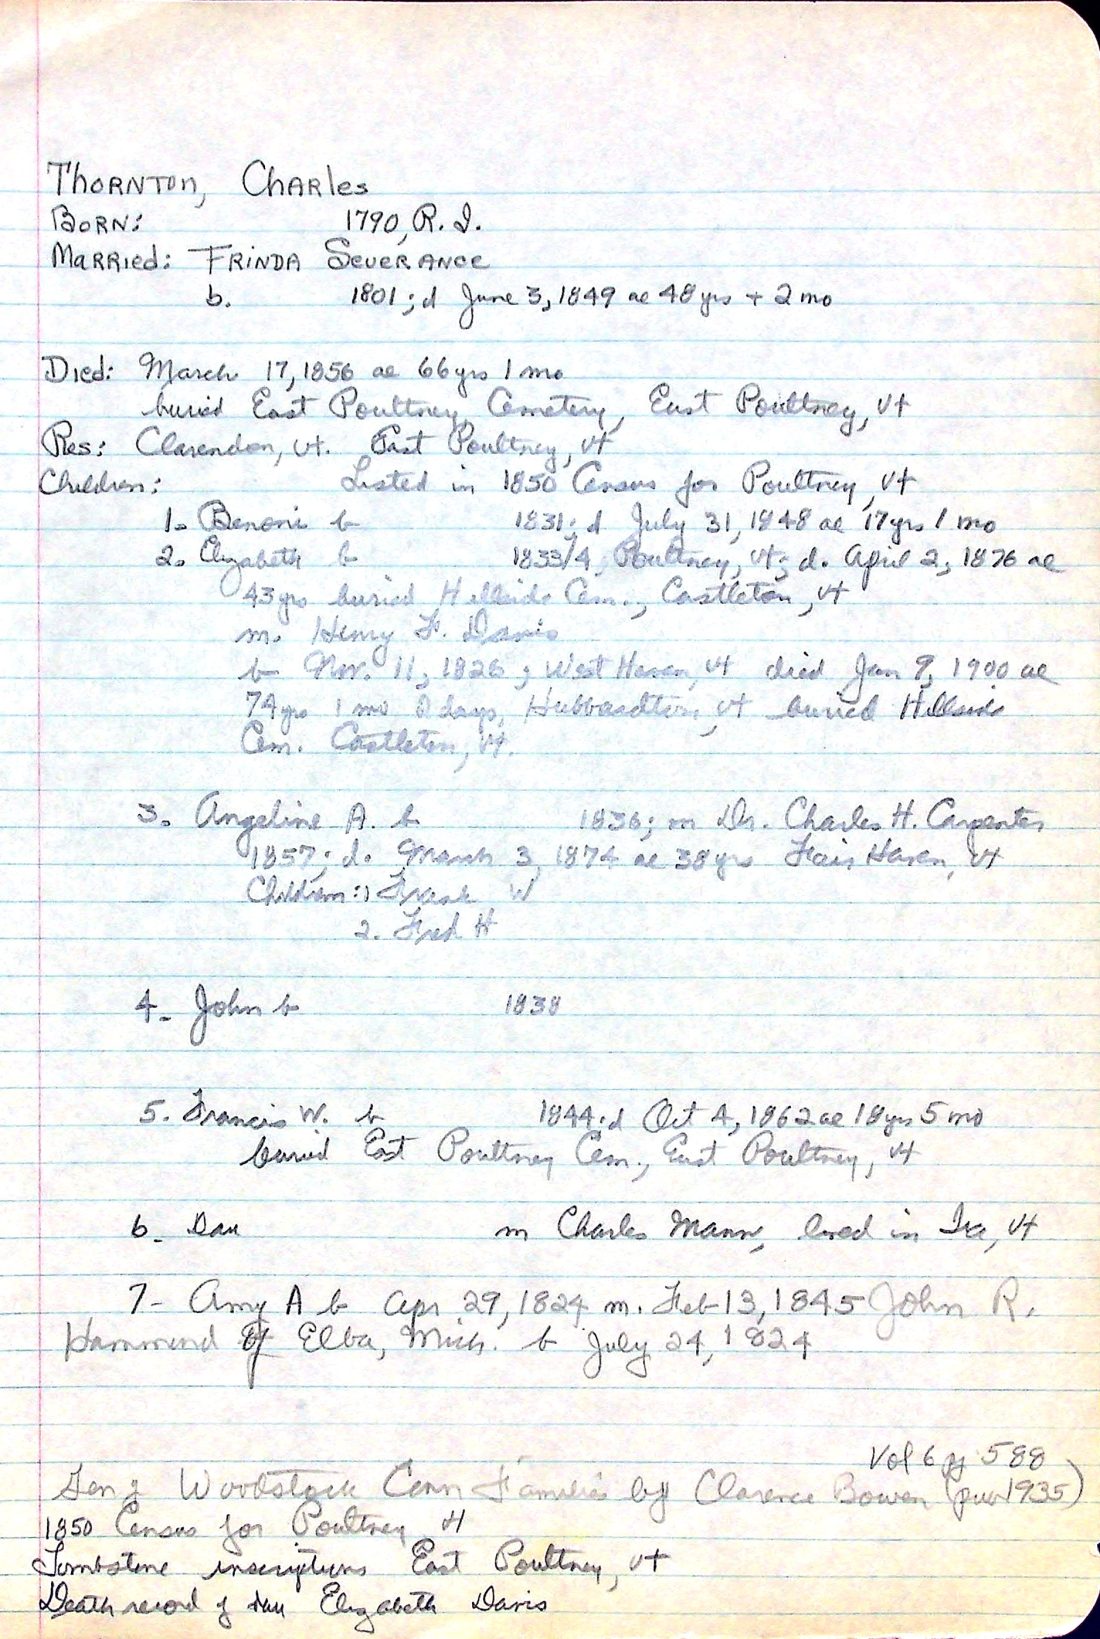 THORNTON, CHARles
BORN: 1790, R.I.
MARRied: FRINDA SEVERANCE
b. 1801; d June 3, 1849 ae 48 yrs + 2 mo
Died: March 17, 1856 ae 66 yrs 1 mo
buried East Poultney Cemetery, East Poultney, Vt
Res: Clarendon, Vt. East Poultney, Vt
Children: Listed in 1850 Census for Poultney, Vt
1. Benoni b 1831; d July 31, 1848 ae 17 yrs 1 mo
2. Elizabeth b 1833/4, Poultney, Vt; d. April 2, 1876 ae
43 yrs buried Hillside Cem., Castleton, Vt
m. Henry F. Davis
b Nov. 11, 1826; West Haven, Vt died Jan 9, 1900 ae
74 yrs 1 mo days, Hubbardton, Vt buried Hillside
Cem. Castleton, Vt.
3. Angeline A. b 1836; m Dr. Charles H. Carpenter
1857; d. March 3, 1874 ae 38 yrs Fair Haven, Vt
Children: 1) Frank W
2. Fred H
4. John b 1838
5. Francis W. b 1844; d Oct 4, 1862 ae 18 yrs 5 mo
buried East Poultney Cem., East Poultney, Vt
6. Dau m Charles Mann, lived in Ira, Vt
7- Amy A b Apr 29, 1824 m. Feb 13, 1845 John R.
Hammond of Elba, Mich. b July 24, 1824
Vol 6 pg 588
Gen of Woodstock Conn Families by Clarence Bowen (pub 1935)
1850 Census for Poultney Vt
Tombstone inscriptions East Poultney, Vt
Death record of dau Elizabeth Davis